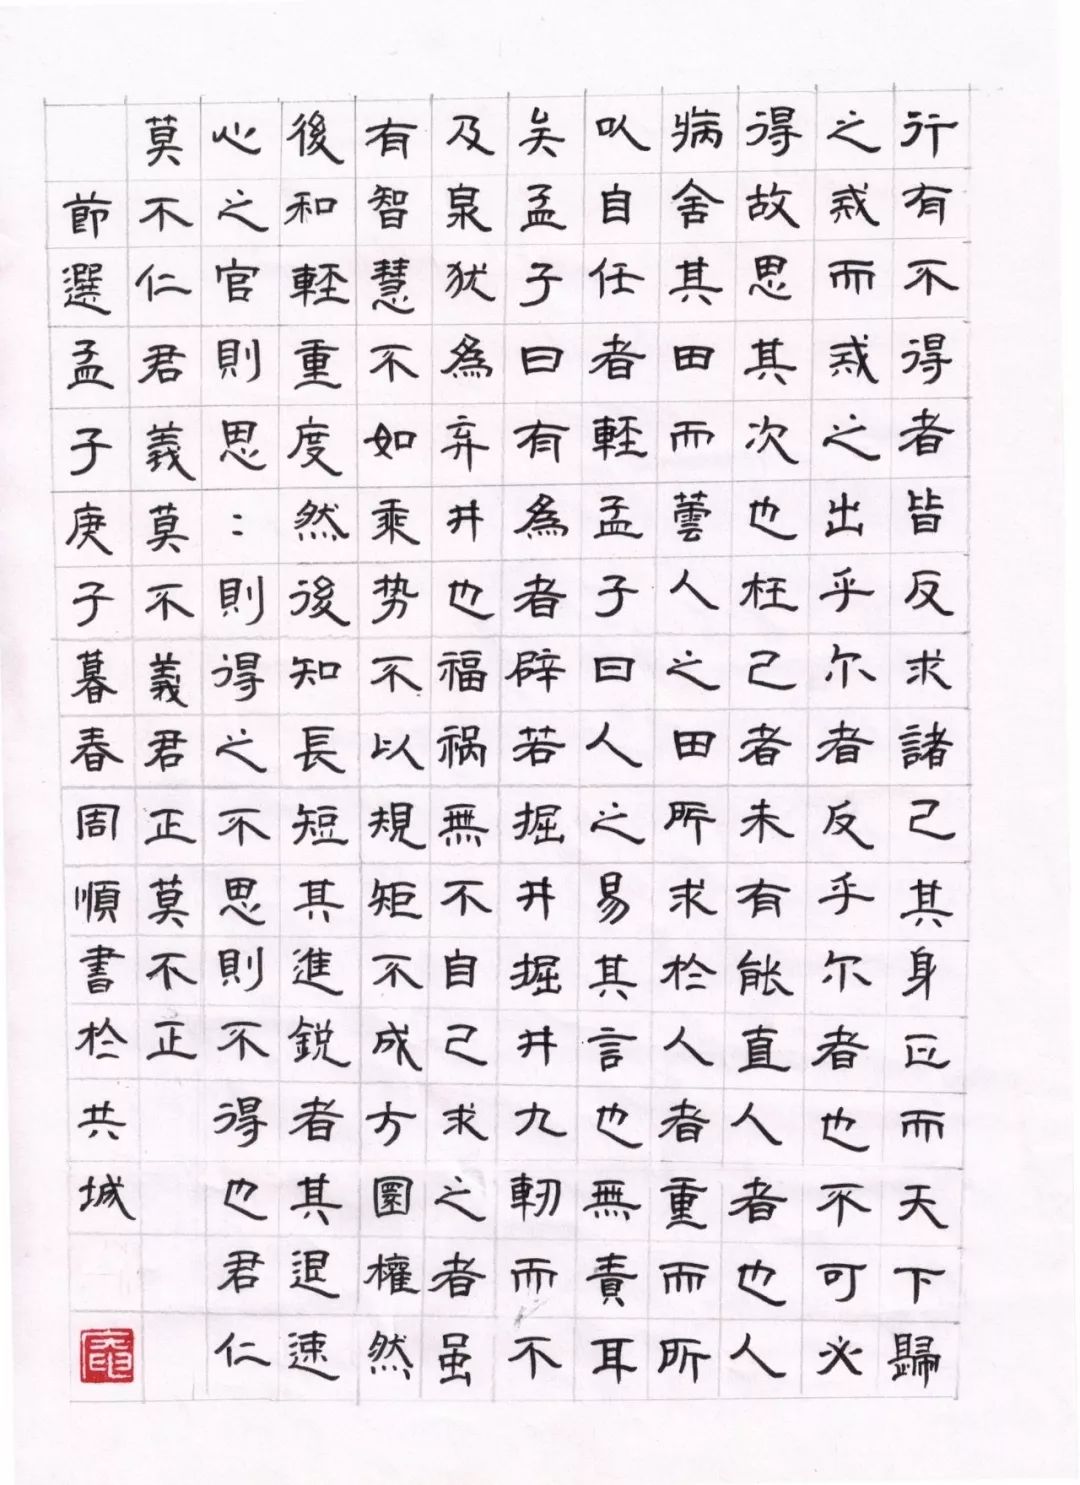 行有不得者皆反求諸己其身正而天下歸
之戒而戒之出乎尔者反乎尔者也不可必
得故思其次也枉己者未有能直人者也人
病舍其田而蕓人之田所求於人者重而所
以自任者輕孟子曰人之易其言也無責耳
矣孟子曰有為者辟若掘井掘井九軔而不
及泉犹為弃井也福祸無不自己求之者虽
有智慧不如乘势不以規矩不成方圜權然
後知輕重度然後知長短其進鋭者其退速
心之官則思:則得之不思則不得也君仁
莫不仁君義莫不義君正莫不正
節選孟子庚子暮春周順書於共城